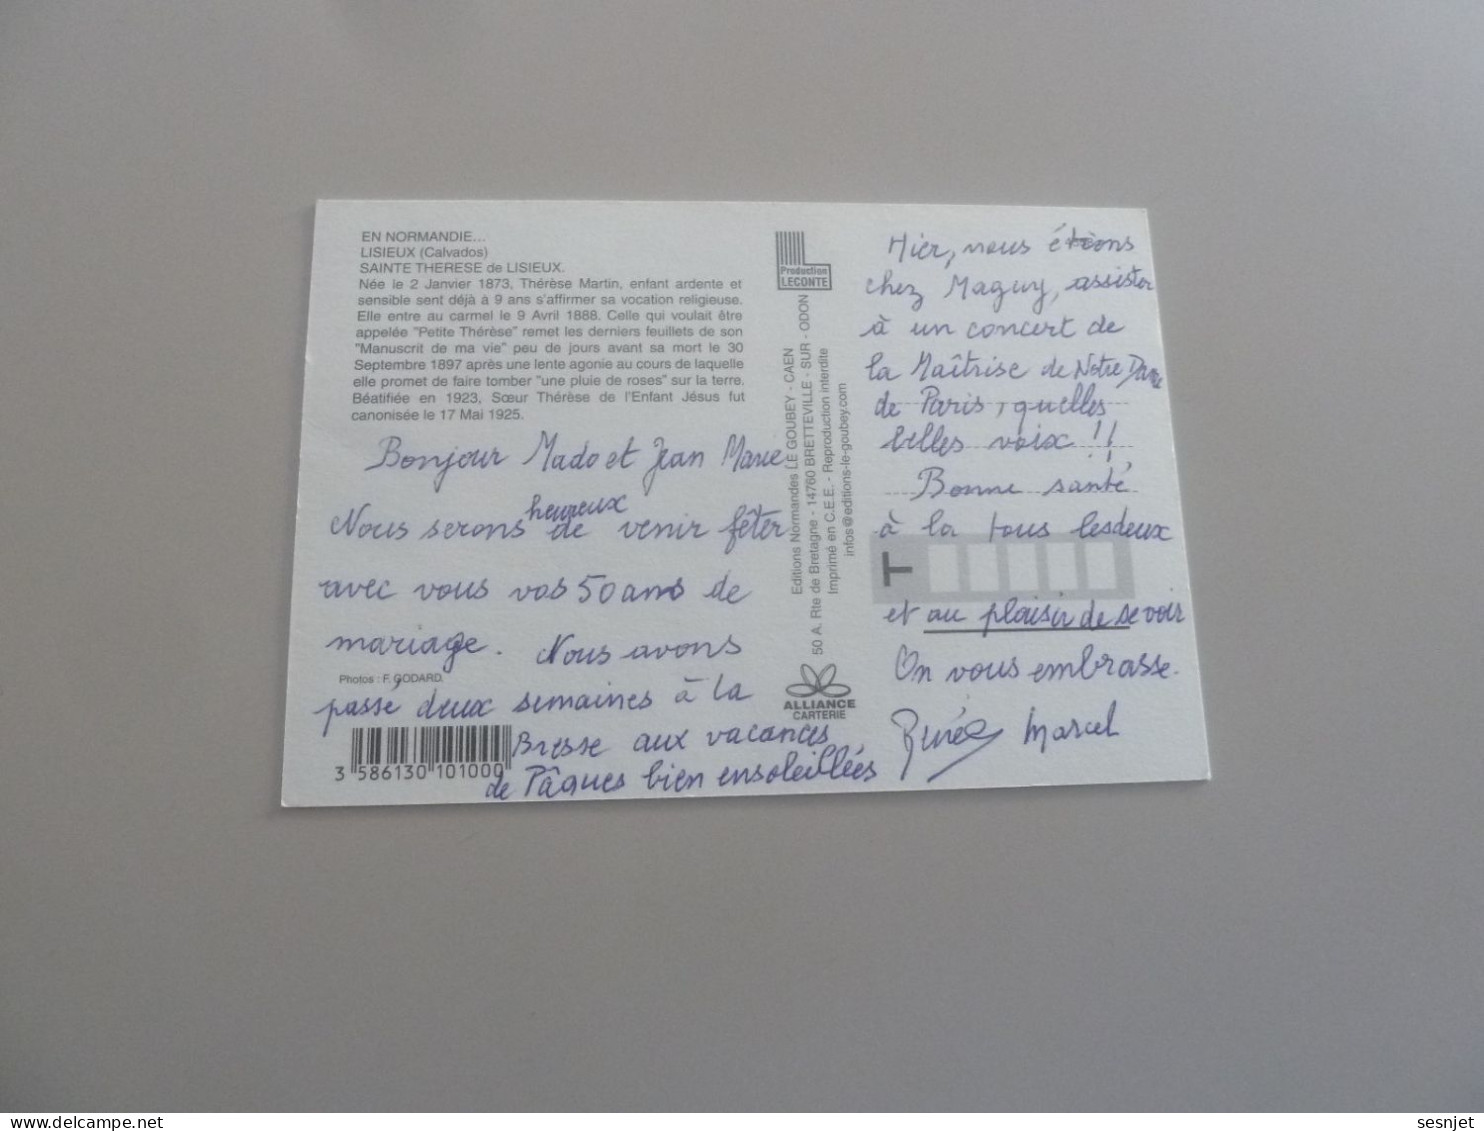 EN NORMANDIE...
LISIEUX (Calvados)
SAINTE THERESE de LISIEUX.
Née le 2 Janvier 1873, Thérèse Martin, enfant ardente et
sensible sent déjà à 9 ans s'affirmer sa vocation religieuse.
Elle entre au carmel le 9 Avril 1888. Celle qui voulait être
appelée "Petite Thérèse" remet les derniers feuillets de son
"Manuscrit de ma vie" peu de jours avant sa mort le 30
Septembre 1897 après une lente agonie au cours de laquelle
elle promet de faire tomber "une pluie de roses" sur la terre.
Béatifiée en 1923, Sœur Thérèse de l'Enfant Jésus fut
canonisée le 17 Mai 1925.
Bonjour Mado et Jean Marie
Nous serons heureux de venir fêter
avec vous vos 50 ans de
mariage. Nous avons
Photos : F. GODARD.
passé deux semaines à la
Bresse aux vacances
de Pâques bien ensoleillés
3 586130 101000
Production
LECONTE
Editions Normandes LE GOUBEY - CAEN
50 A. Rte de Bretagne - 14760 BRETTEVILLE - SUR - ODON
Imprimé en C.E.E. - Reproduction interdite
infos@editions-le-goubey.com
ALLIANCE
CARTERIE
Hier, nous étions
chez Maguy, assister
à un concert de
la Maîtrise de Notre Dame
de Paris, quelles
belles voix !!
Bonne santé
à la tous lesdeux
T
et au plaisir de se voir
On vous embrasse.
Renée Marcel
sesnjet